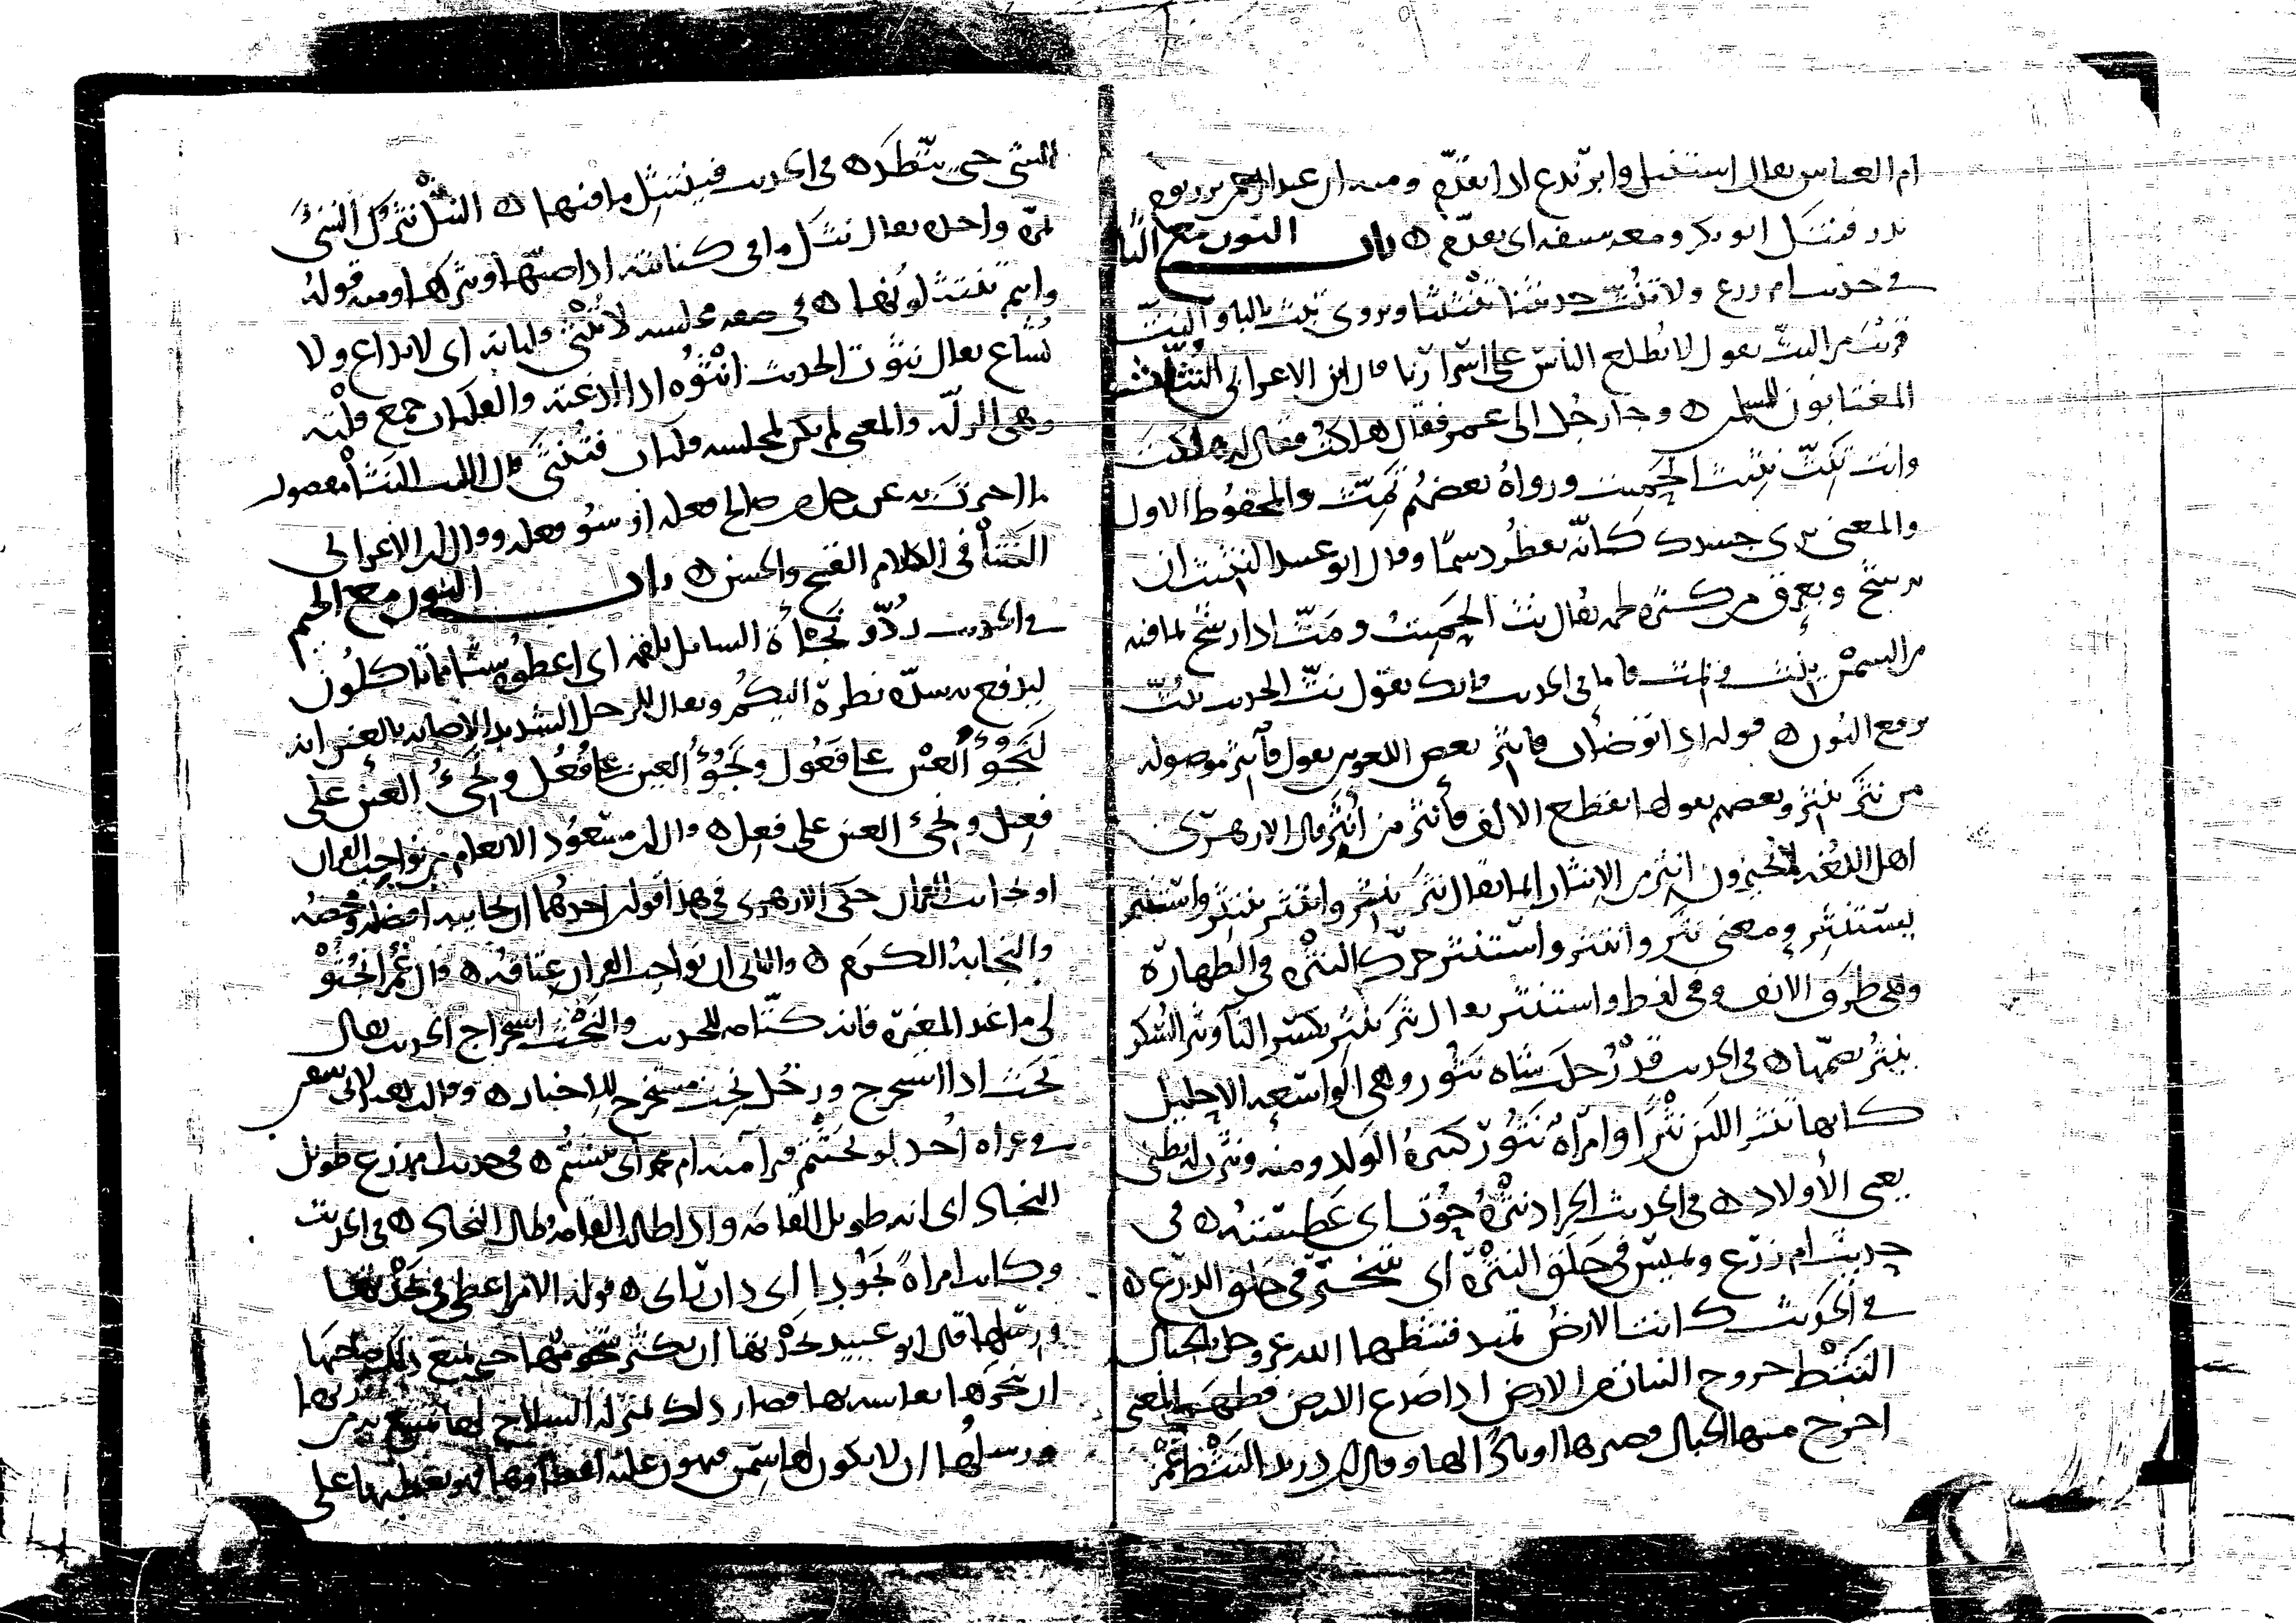 ام العباس يقال استنتل وابرندع اذا تقدم ومنه ان عبد الرحمن برز يوم
بدر فنتل ابو بكر ومعه سيفه اى تقدم ه باب النون مع الثا
فى حديث ام زرع ولا تنث حديثنا تنثيثا ويروى تبث بالباو النث
قريب من البث يقول لا تطلع الناس على اسرارنا قال ابن الاعرابى النثاث
المغتابون للمسلمين ه وجا رجل الى عمر فقال هلكت فقال له اهلكت
وانت تنث نثيث الحميت ورواه بعضهم تمث والمحفوظ الاول
والمعنى يرى جسدك كانه يقطر دسما وقال ابو عبيد النثيث ان
يرشح ويعرق من كثرة لحمه يقال نث الحميت ومث اذا رشح لما فيه
من السمن ينث ويمث فاما فى الحديث فانك تقول نث الحديث ينث
برفع النون ه قوله اذا توضات فانثر بعض اللغويين يقول فانثر موصوله
من نثر ينثر وبعضهم يقول بقطع الالف فانثر من انثر قال الازهرى
اهل اللغه لا يجيزون انثر من الانثار انما يقال نثر ينثر وانتثر ينتثر واستنثر
يستنثر ومعنى نثر وانتثر واستنثر حرك النثرة فى الطهارة
وهى طرف الانف وفى لفظ واستنثر يقال نثر ينثر بكسر الثا ونثر السكر
ينثر بضمها ه فى الحديث شاه نثور وهى الواسعه الاحليل
كانها تنثر اللبن نثرا وامراة نثور كثيرة الولد ومنه ونثرت له بطنى
يعنى الأولاد ه فى الحديث الجراد نثرة حوت اى عطسته ه فى
حديث ام زرع ويميس فى حلق النثرة اى يتبختر فى حلق الدرع ه
فى الحديث كانت الارض تميد فنثطها الله عز وجل بالجبال
النثط خروج النبات من الارض اذا صدع الارض فظهر والمعنى
اخرج منها الجبال فصيرها اوتادا لها وقال ابن دريد النثط غمز
الشى حتى يتطد ه فى الحديث فينتثل ما فيها ه النثل نثرك الشئ
بمرة واحدة يقال نثل ما فى كنانته اذا صبها ونثرها ومنه قوله
وانتم تنتثلونها ه فى صفة مجلسه لا تنثى فلتاته اى لا تذاع ولا
تشاع يقال نثوت الحديث انثوه اذا اذعته والفلتات جمع فلته
وهى الزلة والمعنى لم يكن لمجلسه فلتات فتنثى قال الليث النثا مقصور
ما اخبرت به عن رجل من صالح فعله او سو فعله وقال ابن الاعرابى
النثا فى الكلام القبيح والحسن ه باب النون مع الجيم
فى الحديث ردوا نجاة السائل بلقمه اى اعطوه شيا مما تاكلون
ليدفع به شدة نظرة اليكم ويقال للرجل الشديد الاصابه بالعين انه
لنجوء العين على فعول ونجؤ العين على فعل ونجئ العين على
فعيل ونجئ العين على فعل ه وقال ابن مسعود الانعام من نواجب القران
او نجايب القران حكى الازهرى فى هذا قولين احدهما ان نجايبه افضله ومحضه
والنجابه الكرم ه والثانى ان نواجب القران عتاقه ه وقال عمر انجثوا
لى ما عند المغيرة فانه كتامه للحديث والنجث استخراج الحديث يقال
نجث اذا استخرج ورجل نجث مستخرج للاخبار ه وقالت هند لابى سفين
فى غزاه احد لو نجثتم قبر آمنه ام محمد اى نبشتم ه فى حديث ام زرع طويل
النجاد اى انه طويل القامه واذا طالت القامه طال النجاد ه فى الحديث
وكانت امراة نجودا اى ذات راى ه قوله الا من اعطى فى نجدتها
ورسلها قال ابو عبيد نجدتها ان تكثر شحومها حتى يمنع ذلك صاحبها
ان ينحرها نفاسه بها فصار ذلك بمنزله السلاح لها تمتنع به من ربها
ورسلها ان لا يكون لها سمن فيهون عليه اعطاوها فهو يعطيها على